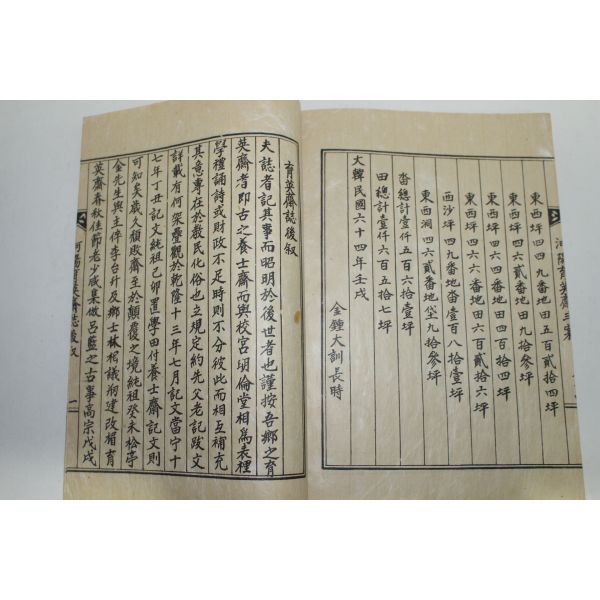 河陽育英齋三案
東西坪四四九番地田六百貳拾四坪
東西坪四六貳番地田六百貳拾四坪
東西坪四六四番地田四百拾四坪
東西坪四六六番地田六百貳拾六坪
東西洞四六貳番地垈九拾參坪
西沙坪四九番地畓百八拾壹坪
畓總計壹仟五百六拾壹坪
田總計壹仟六百五拾七坪
大韓民國六十四年壬戌
金鍾大訓長時
育英齋誌後敘
夫誌者記其事而昭明於後世者也謹按吾鄉之育
英齋者即古之養士齋而與校宮明倫堂相為表裡
學禮誦詩或財政不足時則不分彼此而相互補充
其意專在於教民化俗也立規定約先父老記跋文
詳載有何架疊觀於乾隆十三年七月記文當宁十
七年丁丑記文純祖己卯置學田付養士齋記文則
可知矣歲久頹敗齋至於顛覆之境純祖癸未松亭
金先生與主倅李台升及鄉士林松議刱建改楣育
英齋春秋佳節老少咸集倣呂藍之古事高宗戊戌
河陽育英齋誌後敘
一